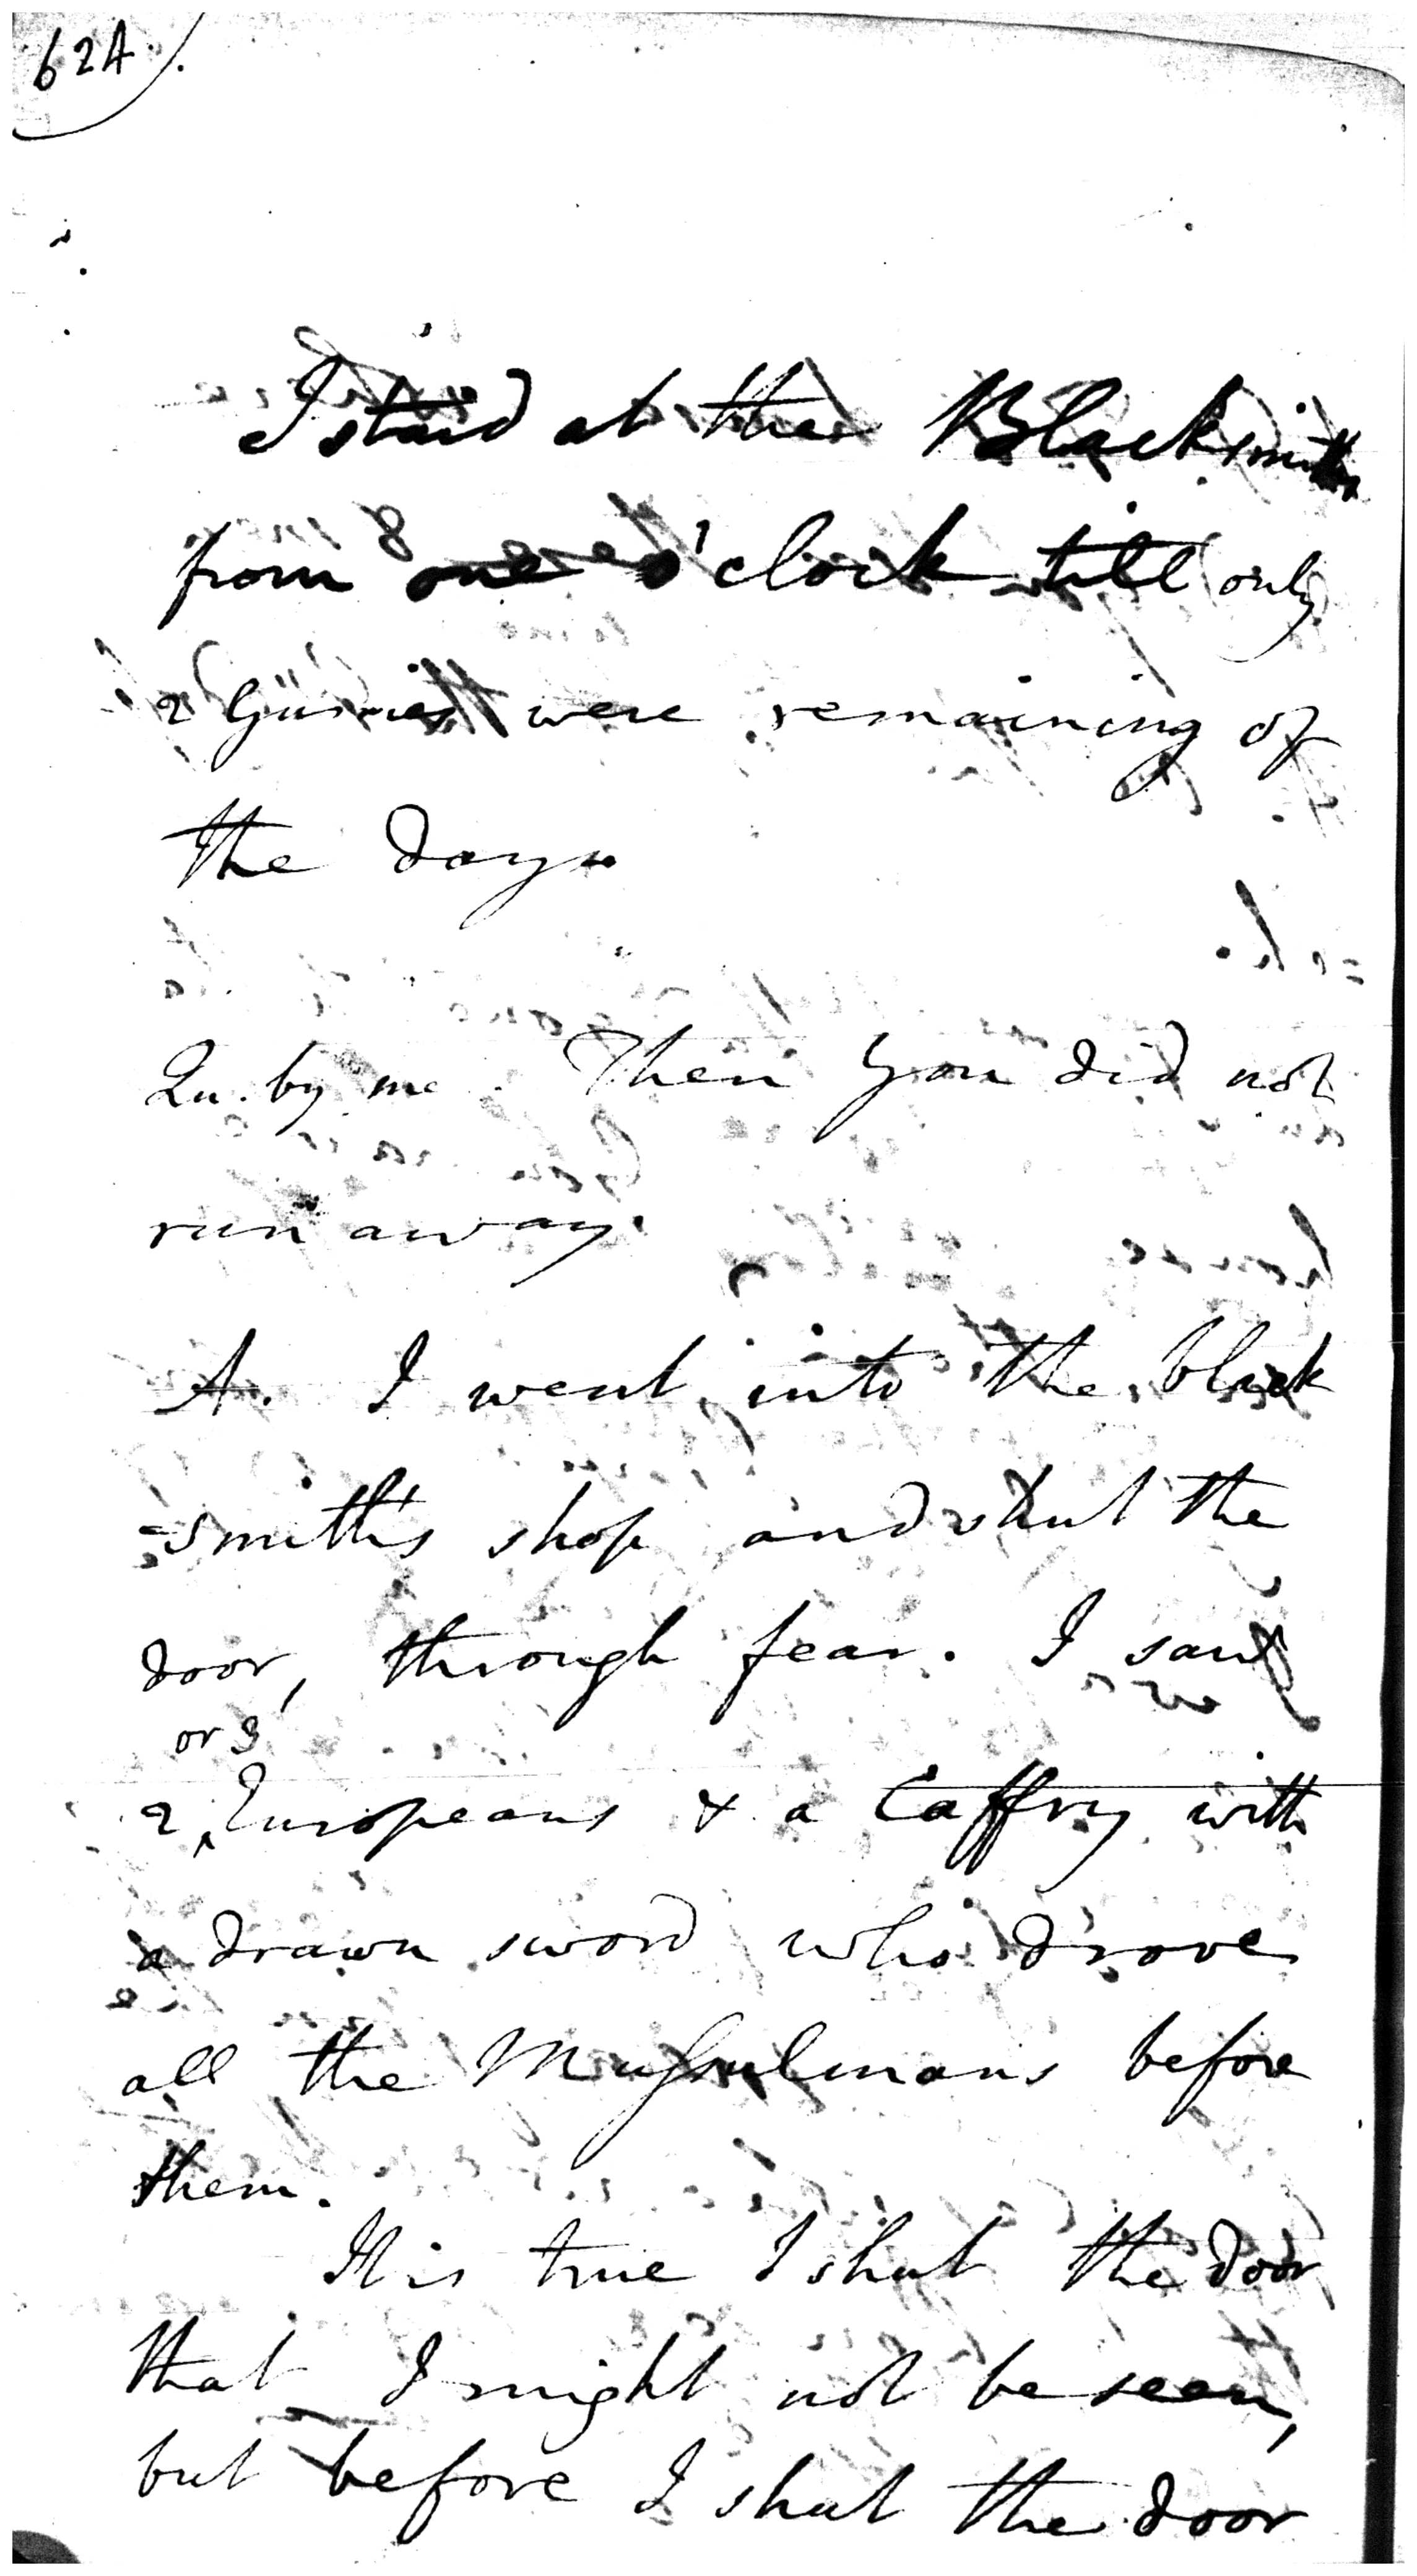 624.
I staid at the Blacksmiths
from one o'clock till only
2 Gürries were remaining of
the day.
Qu. by me. Then you did not
run away.
A. I went into the black
=smith's shop and shut the
door, through fear. I saw
or 3
2 Europeans & a Caffry with
a drawn sword who drove
all the Mussulmans before
them.
It is true I shut the door
that I might not be seen,
but before I shut the door